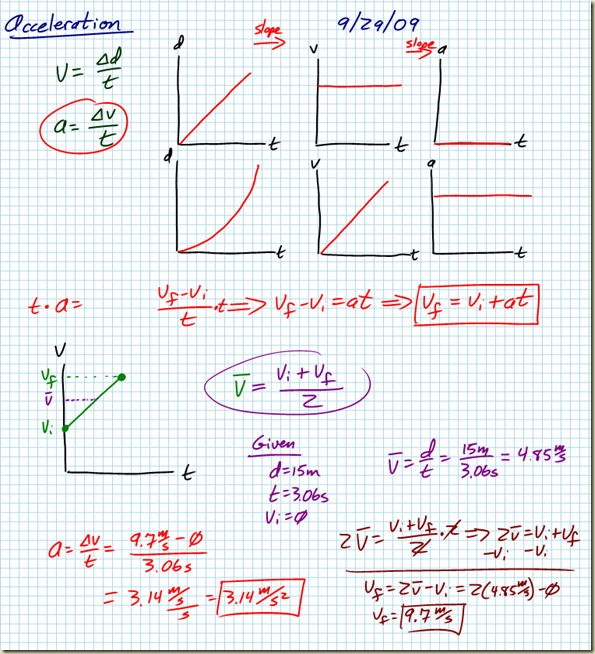 Acceleration 9/29/09
slope slope
V = Δd/t
a = Δv/t
d t v t a t
d t v t a t
t · a = (Vf - Vi)/t · t => Vf - Vi = at => Vf = Vi + at
V
Vf
V̄
Vi
t
V̄ = (Vi + Vf)/2
Given
d = 15m
t = 3.06s
Vi = ∅
V̄ = d/t = 15m/3.06s = 4.85 m/s
a = Δv/t = (9.7 m/s - ∅)/3.06s
= 3.14 m/s/s = 3.14 m/s²
2V̄ = (Vi + Vf)/2 · 2 => 2V̄ = Vi + Vf
-Vi -Vi
Vf = 2V̄ - Vi = 2(4.85 m/s) - ∅
Vf = 9.7 m/s